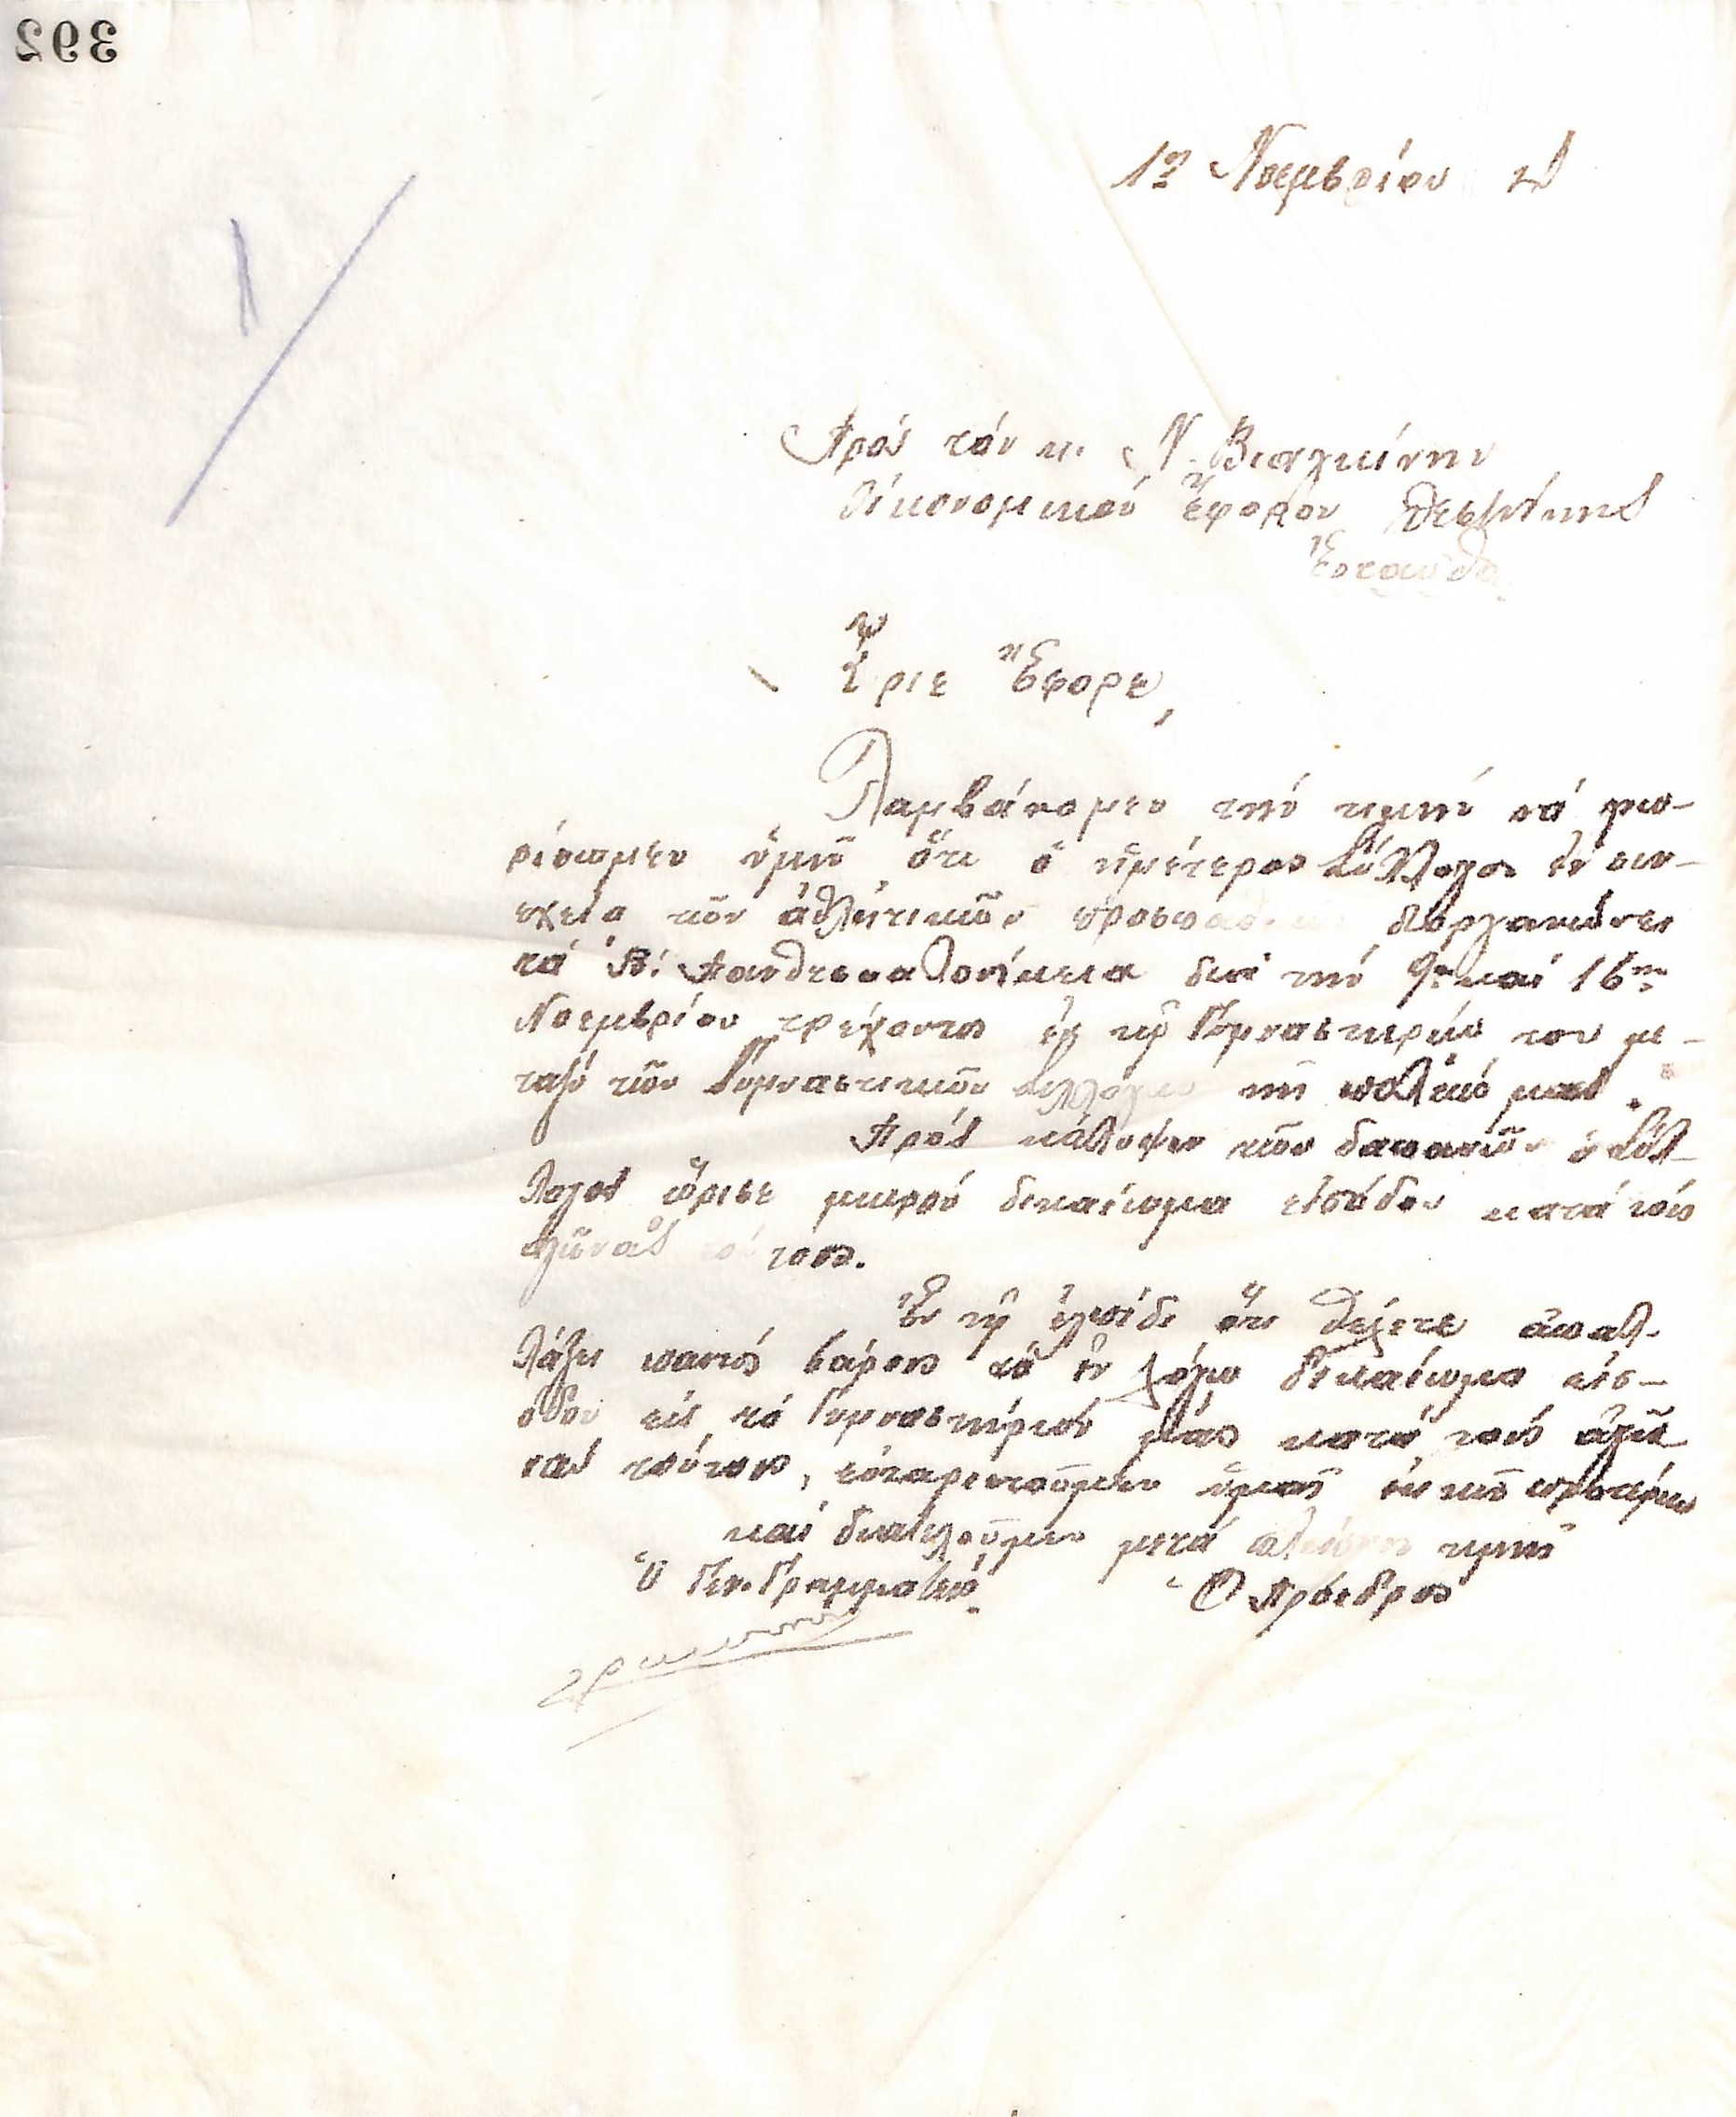 392
1η Νοεμβρίου
Πρός τόν κ. Ν.
Οἰκονομικόν Ἔφορον Θεσ/νίκης
Ἐνταῦθα
Κύριε Ἔφορε,
Λαμβάνομεν τήν τιμήν νά γνω-
ρίσωμεν ὑμῖν ὅτι ὁ ἡμέτερος Σύλλογος ἐν συν-
εχείᾳ τῶν ἀθλητικῶν διοργανώνει
τά Πανθεσσαλονίκεια διά τήν 9ην καί 16ην
Νοεμβρίου τρέχοντος ἐν τῷ Γυμναστηρίῳ του με-
ταξύ τῶν Γυμναστικῶν Συλλόγων τῆς πόλεώς μας.
Πρός κάλυψιν τῶν δαπανῶν ὁ Σύλ-
λογος ὥρισε μικρόν δικαίωμα εἰσόδου κατά τούς
ἀγῶνας τούτους.
Ἐν τῇ ἐλπίδι ὅτι θέλετε ἀπαλ-
λάξει παντός βάρους τό ἐν λόγῳ δικαίωμα εἰσ-
όδου εἰς τό Γυμναστήριόν μας κατά τούς ἀγῶ-
νας τούτους, εὐχαριστοῦμεν ὑμᾶς ἐκ τῶν προτέρων
καί διατελοῦμεν μετά πλείστης τιμῆς
Ὁ Γεν. Γραμματεύς
Ὁ Πρόεδρος